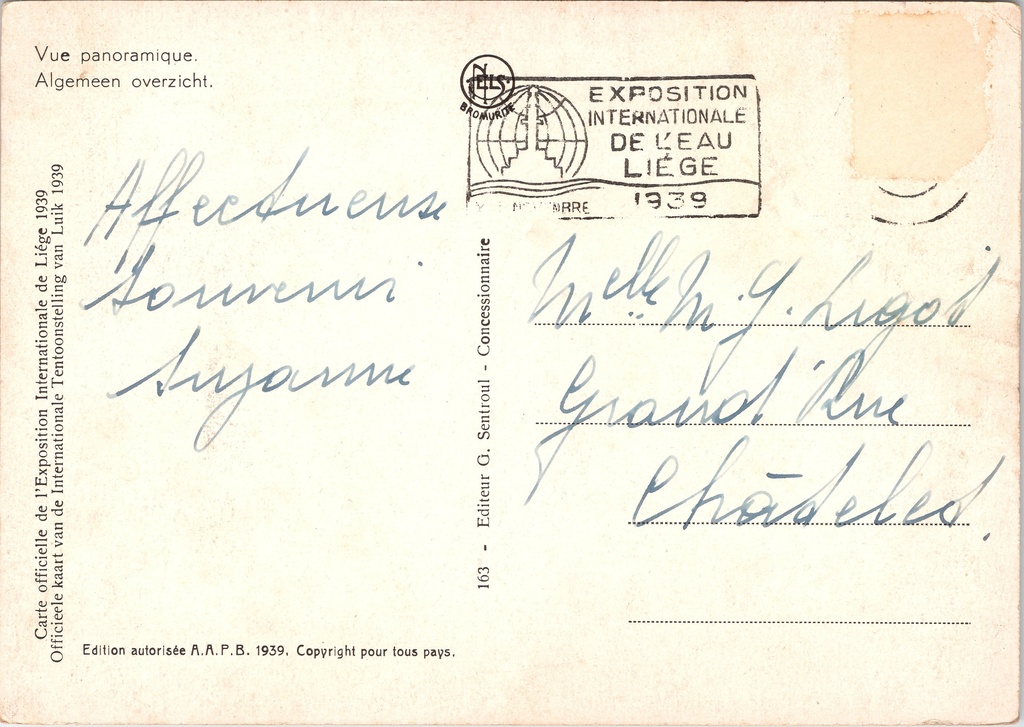 Vue panoramique.
Algemeen overzicht.
NELS
BROMURDE
EXPOSITION
INTERNATIONALE
DE L'EAU
LIÉGE
1939
Affectueuse
Souvenir
Suzanne
Melle M. G. Ligot
Grand' Rue
Châtelet.
Carte officielle de l'Exposition Internationale de Liége 1939
Officieele kaart van de Internationale Tentoonstelling van Luik 1939
163 - Editeur G. Sentroul - Concessionnaire
Edition autorisée A.A.P.B. 1939. Copyright pour tous pays.